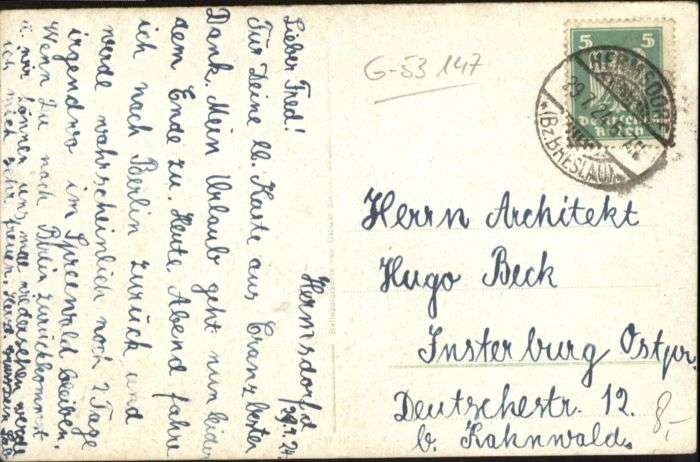 Hermsdorf, d.
29.7.24.
Lieber Fred!
Für Deine lb. Karte aus Cranz besten
Dank. Mein Urlaub geht nun leider
dem Ende zu. Heute Abend fahre
ich nach Berlin zurück und
werde wahrscheinlich noch 2 Tage
irgendwo im Spreewald bleiben.
Wenn Du nach Berlin zurückkommst
u. wir können uns mal wiedersehen werde
ich mich sehr freuen. Herzl.
G-53 147
5 5
Deutsches
Reich
HERMSDORF
29.7.24
*(Bz. BRESLAU)
Herrn Architekt
Hugo Beck
Insterburg Ostpr.
Deutschestr. 12.
b. Kahnwald.
8,-